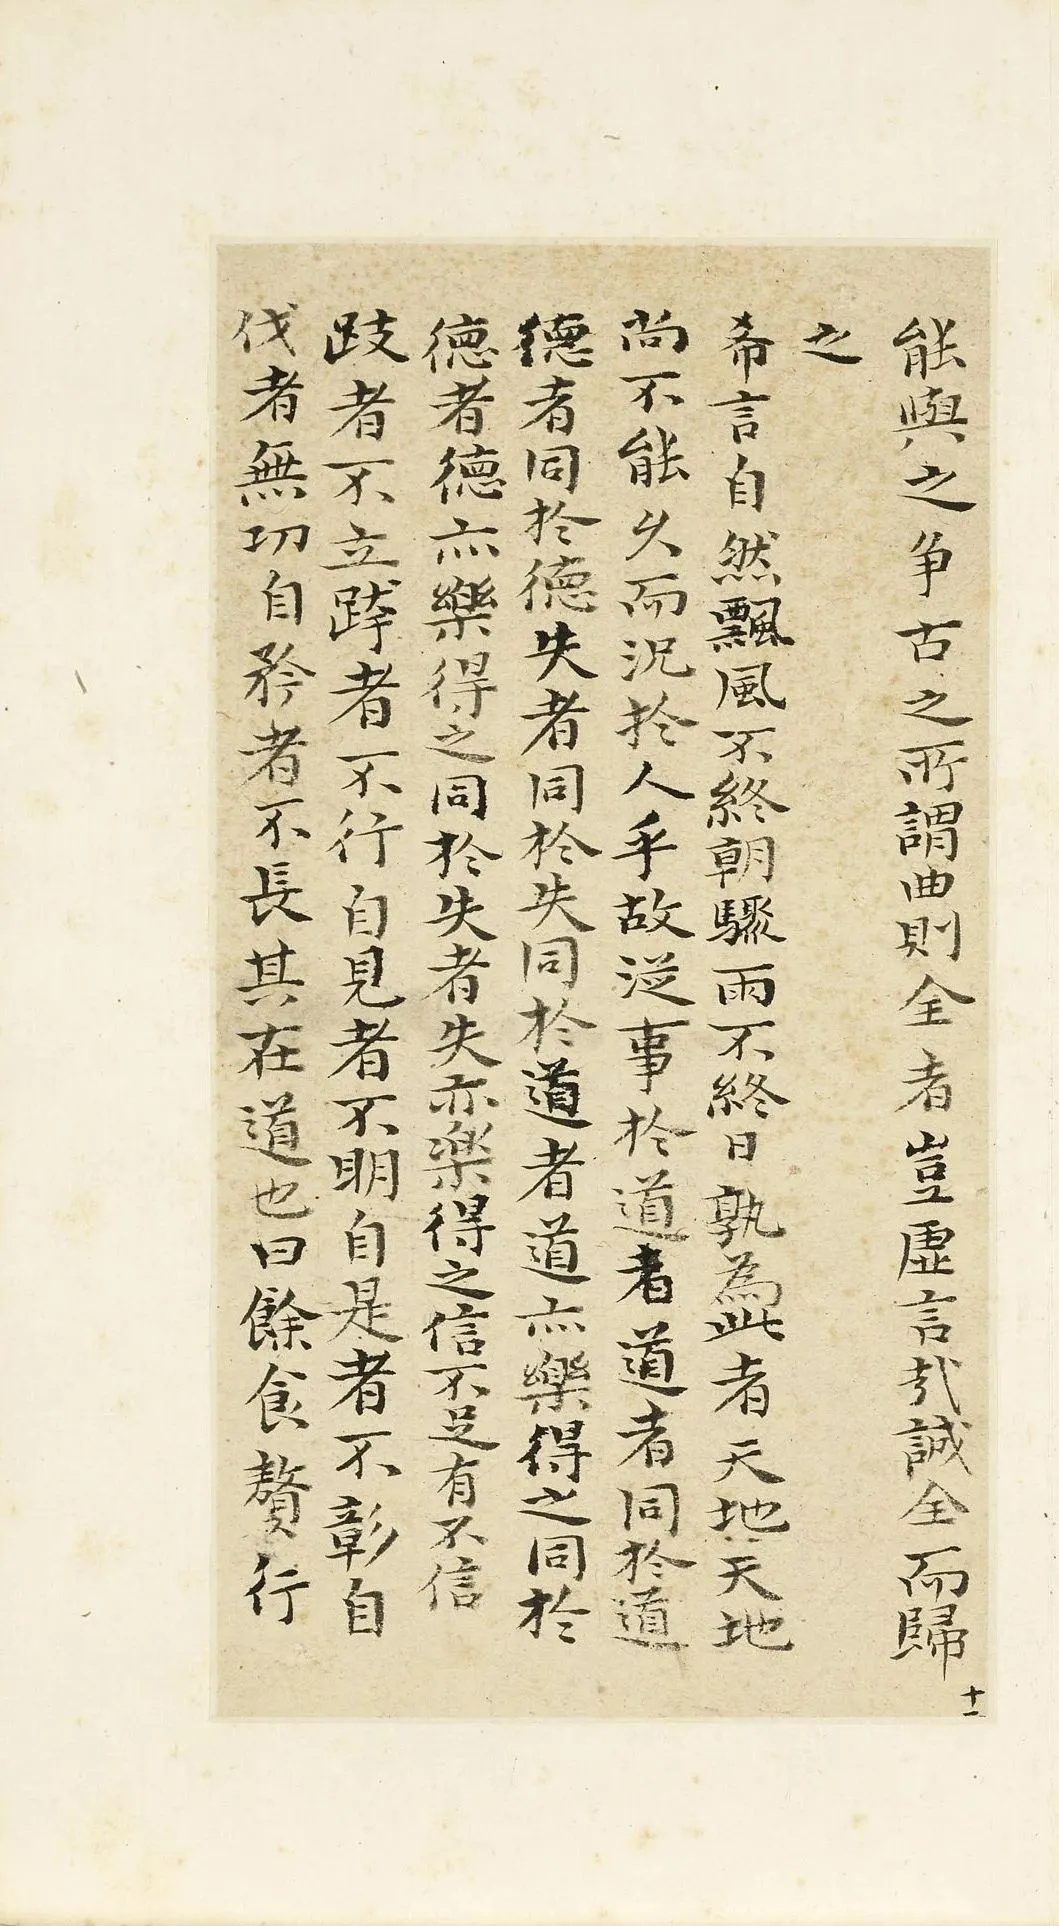 能與之争古之所謂曲則全者豈虛言哉誠全而歸
之
希言自然飄風不終朝驟雨不終日孰為此者天地天地
尚不能久而況於人乎故從事於道者道者同於道
德者同於德失者同於失同於道者道亦樂得之同於
德者德亦樂得之同於失者失亦樂得之信不足有不信
跂者不立跨者不行自見者不明自是者不彰自
伐者無功自矜者不長其在道也曰餘食贅行
十一